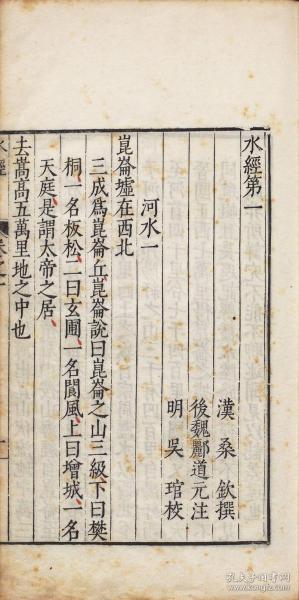 水經第一
漢 桑 欽 撰
後魏酈道元注
明 吳 琯 校
河水一
崑崙墟在西北
三成為崑崙丘崑崙說曰崑崙之山三級下曰樊
桐一名板松二曰玄圃一名閬風上曰增城一名
天庭是謂太帝之居
去嵩高五萬里地之中也
水經
卷之一